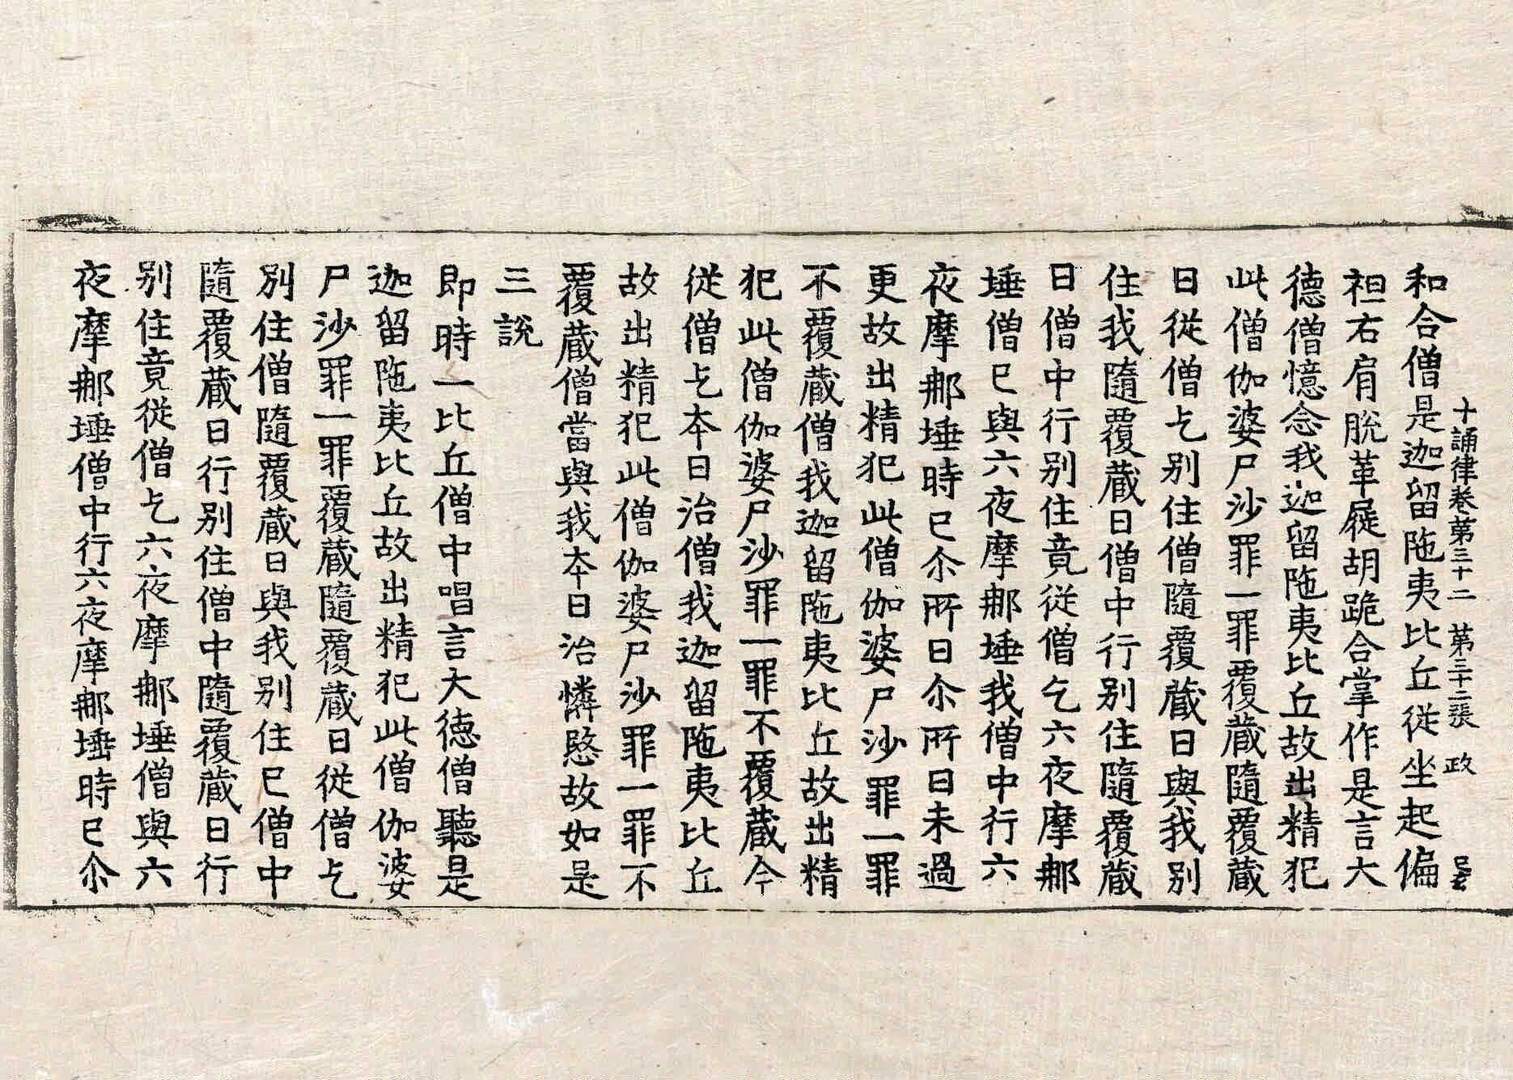 十誦律卷第三十二 第三十二張 政
和合僧是迦留陁夷比丘從坐起偏
袒右肩脫革屣胡跪合掌作是言大
德僧憶念我迦留陁夷比丘故出精犯
此僧伽婆尸沙罪一罪覆藏隨覆藏
日從僧乞别住僧隨覆藏日與我别
住我隨覆藏日僧中行别住隨覆藏
日僧中行别住竟從僧乞六夜摩那
埵僧已與六夜摩那埵我僧中行六
夜摩那埵時已尒所日尒所日未過
更故出精犯此僧伽婆尸沙罪一罪
不覆藏僧我迦留陁夷比丘故出精
犯此僧伽婆尸沙罪一罪不覆藏今
從僧乞夲日治僧我迦留陁夷比丘
故出精犯此僧伽婆尸沙罪一罪不
覆藏僧當與我夲日治憐愍故如是
三說
即時一比丘僧中唱言大德僧聽是
迦留陁夷比丘故出精犯此僧伽婆
尸沙罪一罪覆藏隨覆藏日從僧乞
别住僧隨覆藏日與我别住已僧中
隨覆藏日行别住僧中隨覆藏日行
别住竟從僧乞六夜摩那埵僧與六
夜摩那埵僧中行六夜摩那埵時已尒